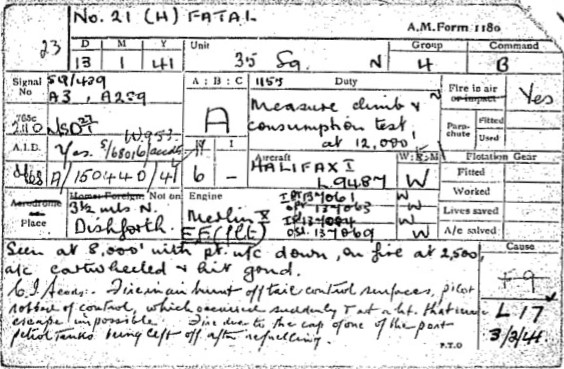 No. 21 (H) FATAL
A.M. Form 1180
23
D M Y Unit Group Command
13 1 41 35 Sq. N 4 B
Signal No
59/439
A3, A259
A : B : C
A
1155 Duty
Measure climb &
consumption test,
at 12,000'
N
Fire in air
or impact
Yes
Parachute
Fitted
Used
765c
A.I.D.
Yes.
W953
A/150440/41
6 -
Aircraft
HALIFAX I
L.9487
W : R : M
W
Flotation Gear
Fitted
Worked
Lives saved
A/c salved
Aerodrome
Place
Home: Foreign: Not on
3½ mls N.
Dishforth.
Engine
Merlin X
EF (flt)
137061 W
137063
137069 W
Cause
Seen at 8,000' with pt. u/c down, on fire at 2,500,
a/c cartwheeled & hit gnd.
C.I. Accds:- Fire in air burnt off tail control surfaces, pilot
robbed of control, which occurred suddenly & at a ht. that made
escape impossible. Fire due to the cap of one of the port
petrol tanks being left off after refuelling.
L 17
3/3/41
P.T.O